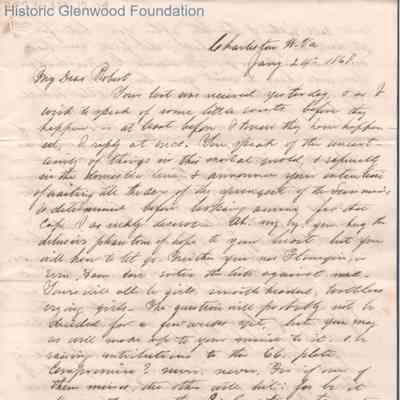 Historic Glenwood Foundation
Charleston W. Va
Jany 24th 1868.
My Dear Robert
Your last was received yesterday, & as I
wish to speak of some little events before they
happen, or at least before I know they have happen
ed, I reply at once. You speak of the uncert
ainty of things in this mortal world, & especially
in the domestic line, & announce your intention
of waiting till the sex of the
is determined before looking around for the
Cup I so richly deserve. Ah! my boy you hug the
delusive phantom of hope to your heart but you
will have to let go. Neither you nor
even Sam can
Yours will all be girls, smooth headed, toothless
crying girls. The question will probably not be
decided for a few weeks yet, but you may
as well make up to your mind to it, & be
raising contributions to the Co. plate.
Compromise? never. never. For if one of
them misses, the other will hit: for be it